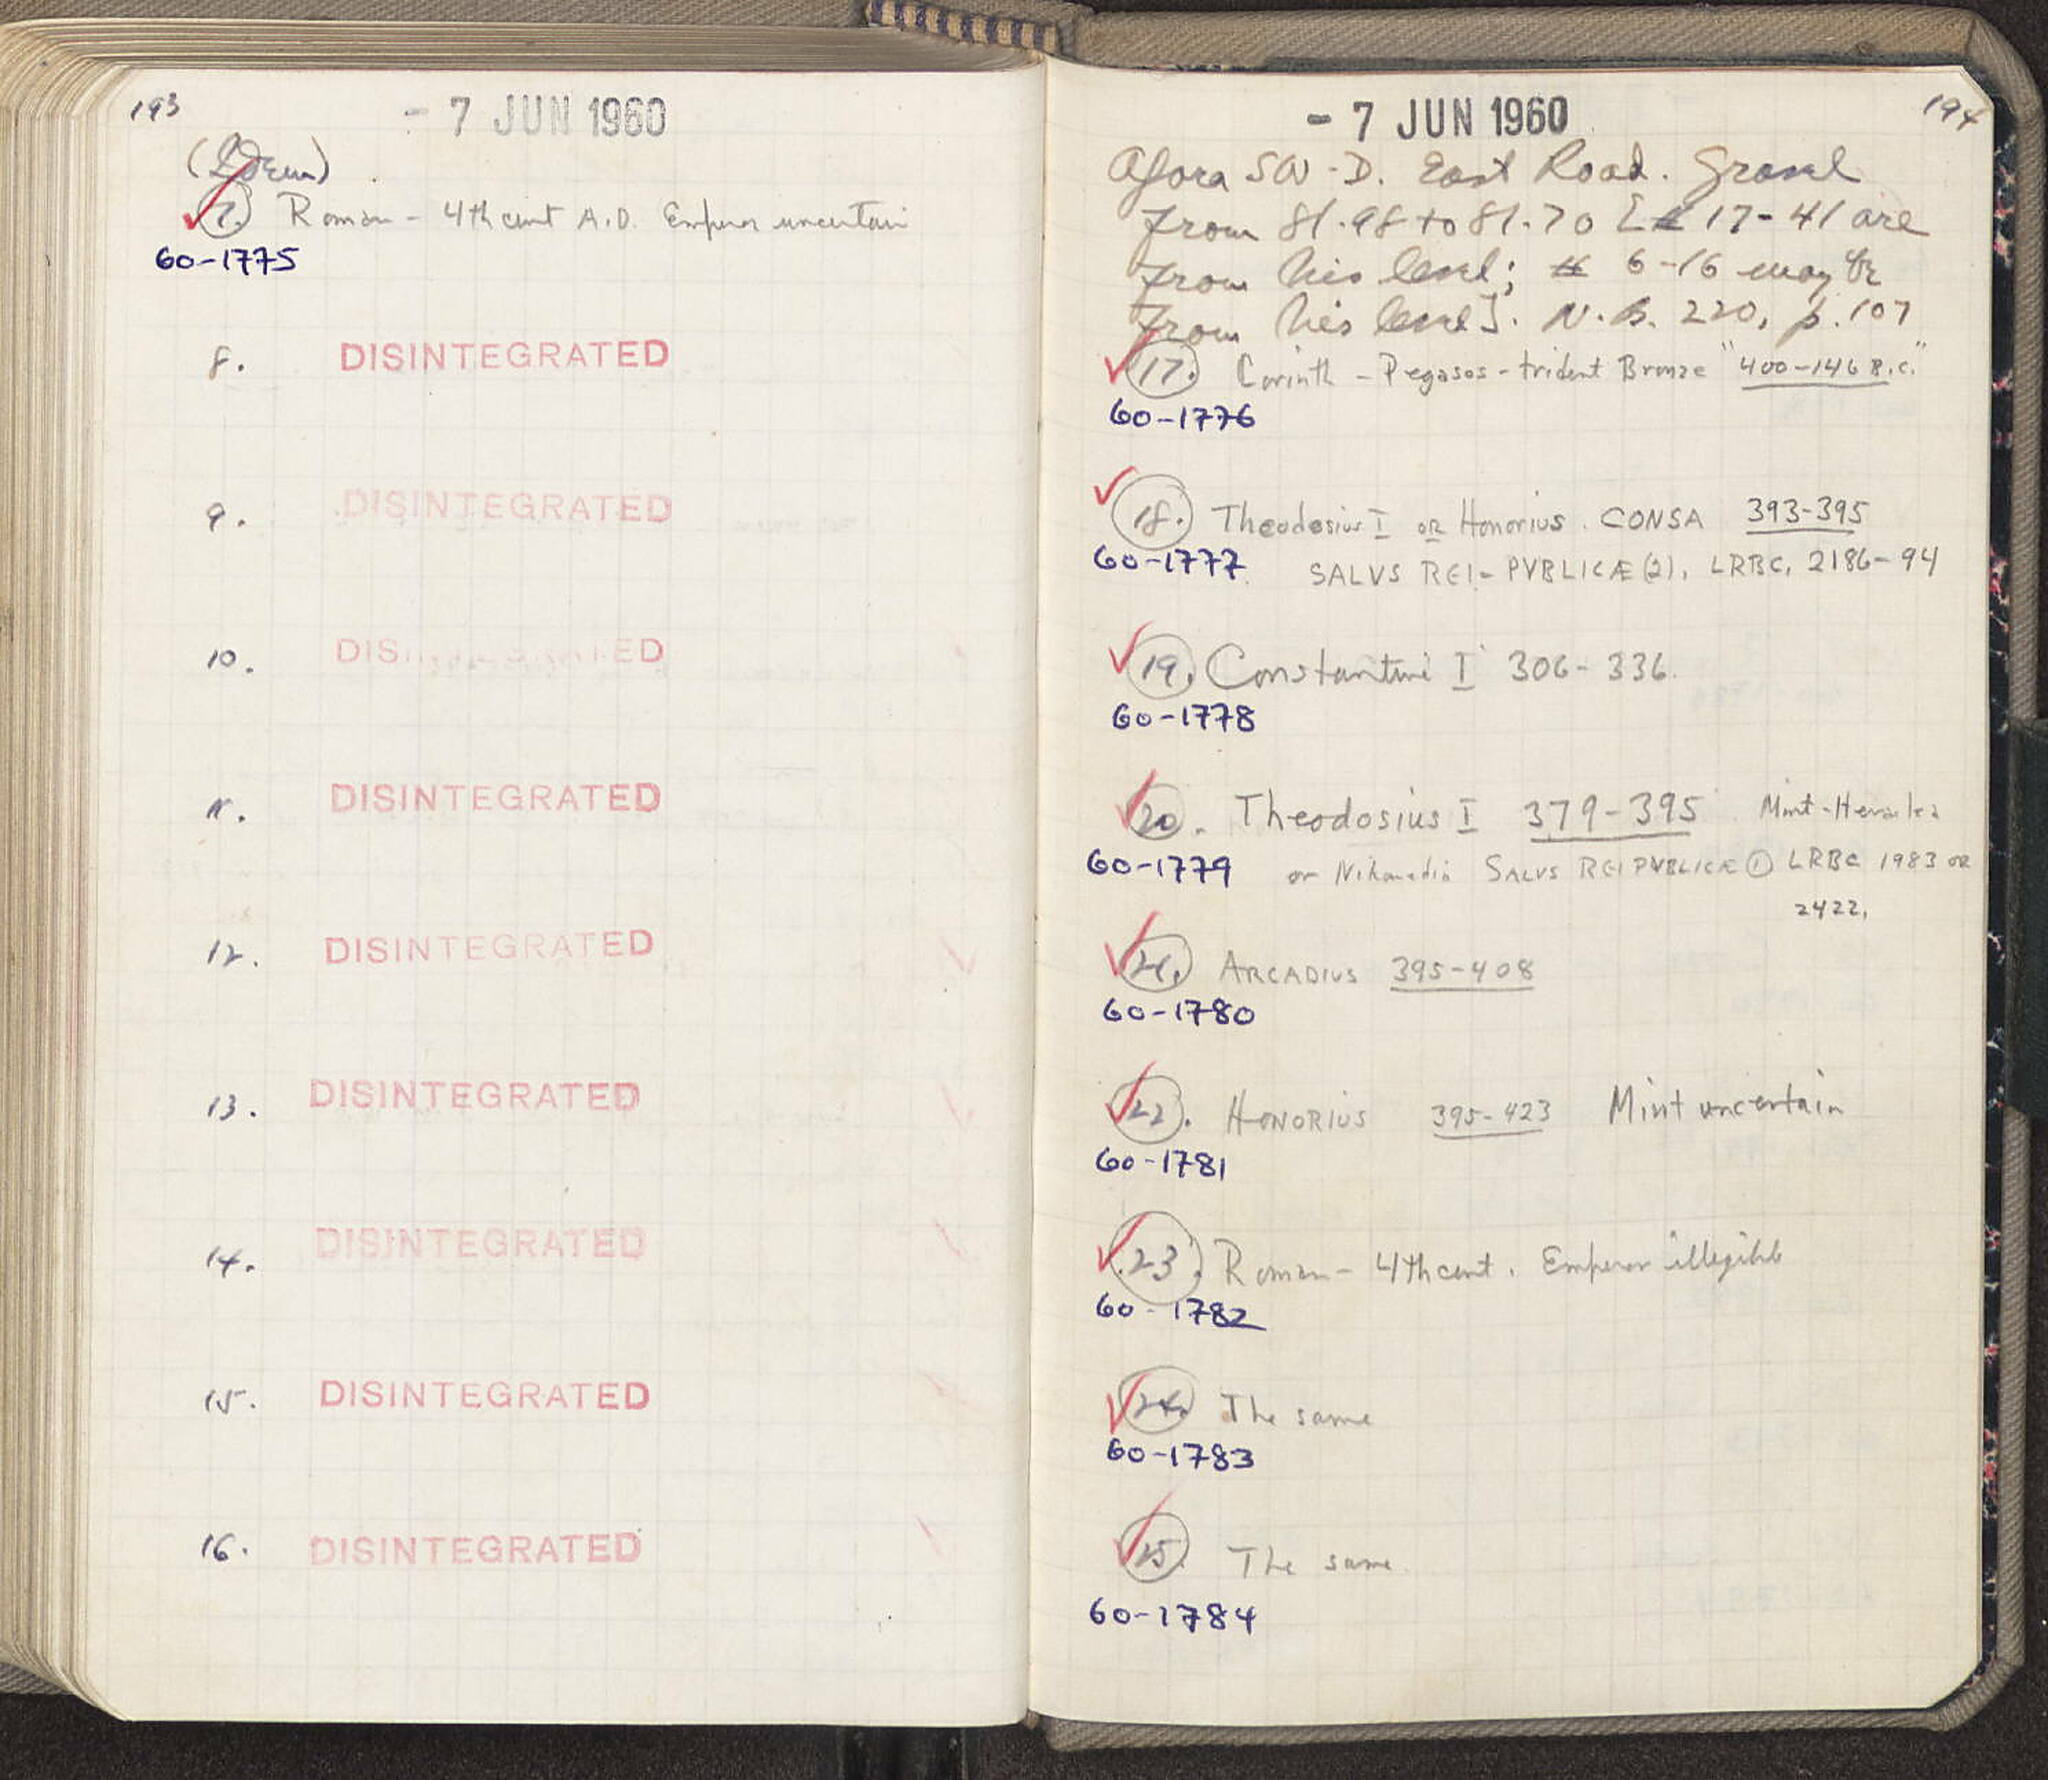 193
- 7 JUN 1960
(Idem)
7. Roman - 4th cent A.D. Emperor uncertain
60-1775
8. DISINTEGRATED
9. DISINTEGRATED
10. DISINTEGRATED
11. DISINTEGRATED
12. DISINTEGRATED
13. DISINTEGRATED
14. DISINTEGRATED
15. DISINTEGRATED
16. DISINTEGRATED
- 7 JUN 1960
194
Agora SW - D. East Road. Gravel
from 81.98 to 81.70 [## 17-41 are
from this level; ## 6-16 may be
from this level]. N.B. 220, p. 107
17. Corinth - Pegasos - trident Bronze "400-146 B.C."
60-1776
18. Theodosius I OR Honorius. CONSA 393-395
60-1777 SALVS REI-PVBLICÆ (2), LRBC, 2186-94
19. Constantine I 306-336.
60-1778
20. Theodosius I 379-395 Mint - Heraklea
60-1779 or Nikomedia SALVS REI PVBLICÆ ① LRBC 1983 OR
2422,
21. ARCADIUS 395-408
60-1780
22. HONORIUS 395-423 Mint uncertain
60-1781
23. Roman - 4th cent. Emperor illegible
60-1782
24. The same
60-1783
25. The same.
60-1784